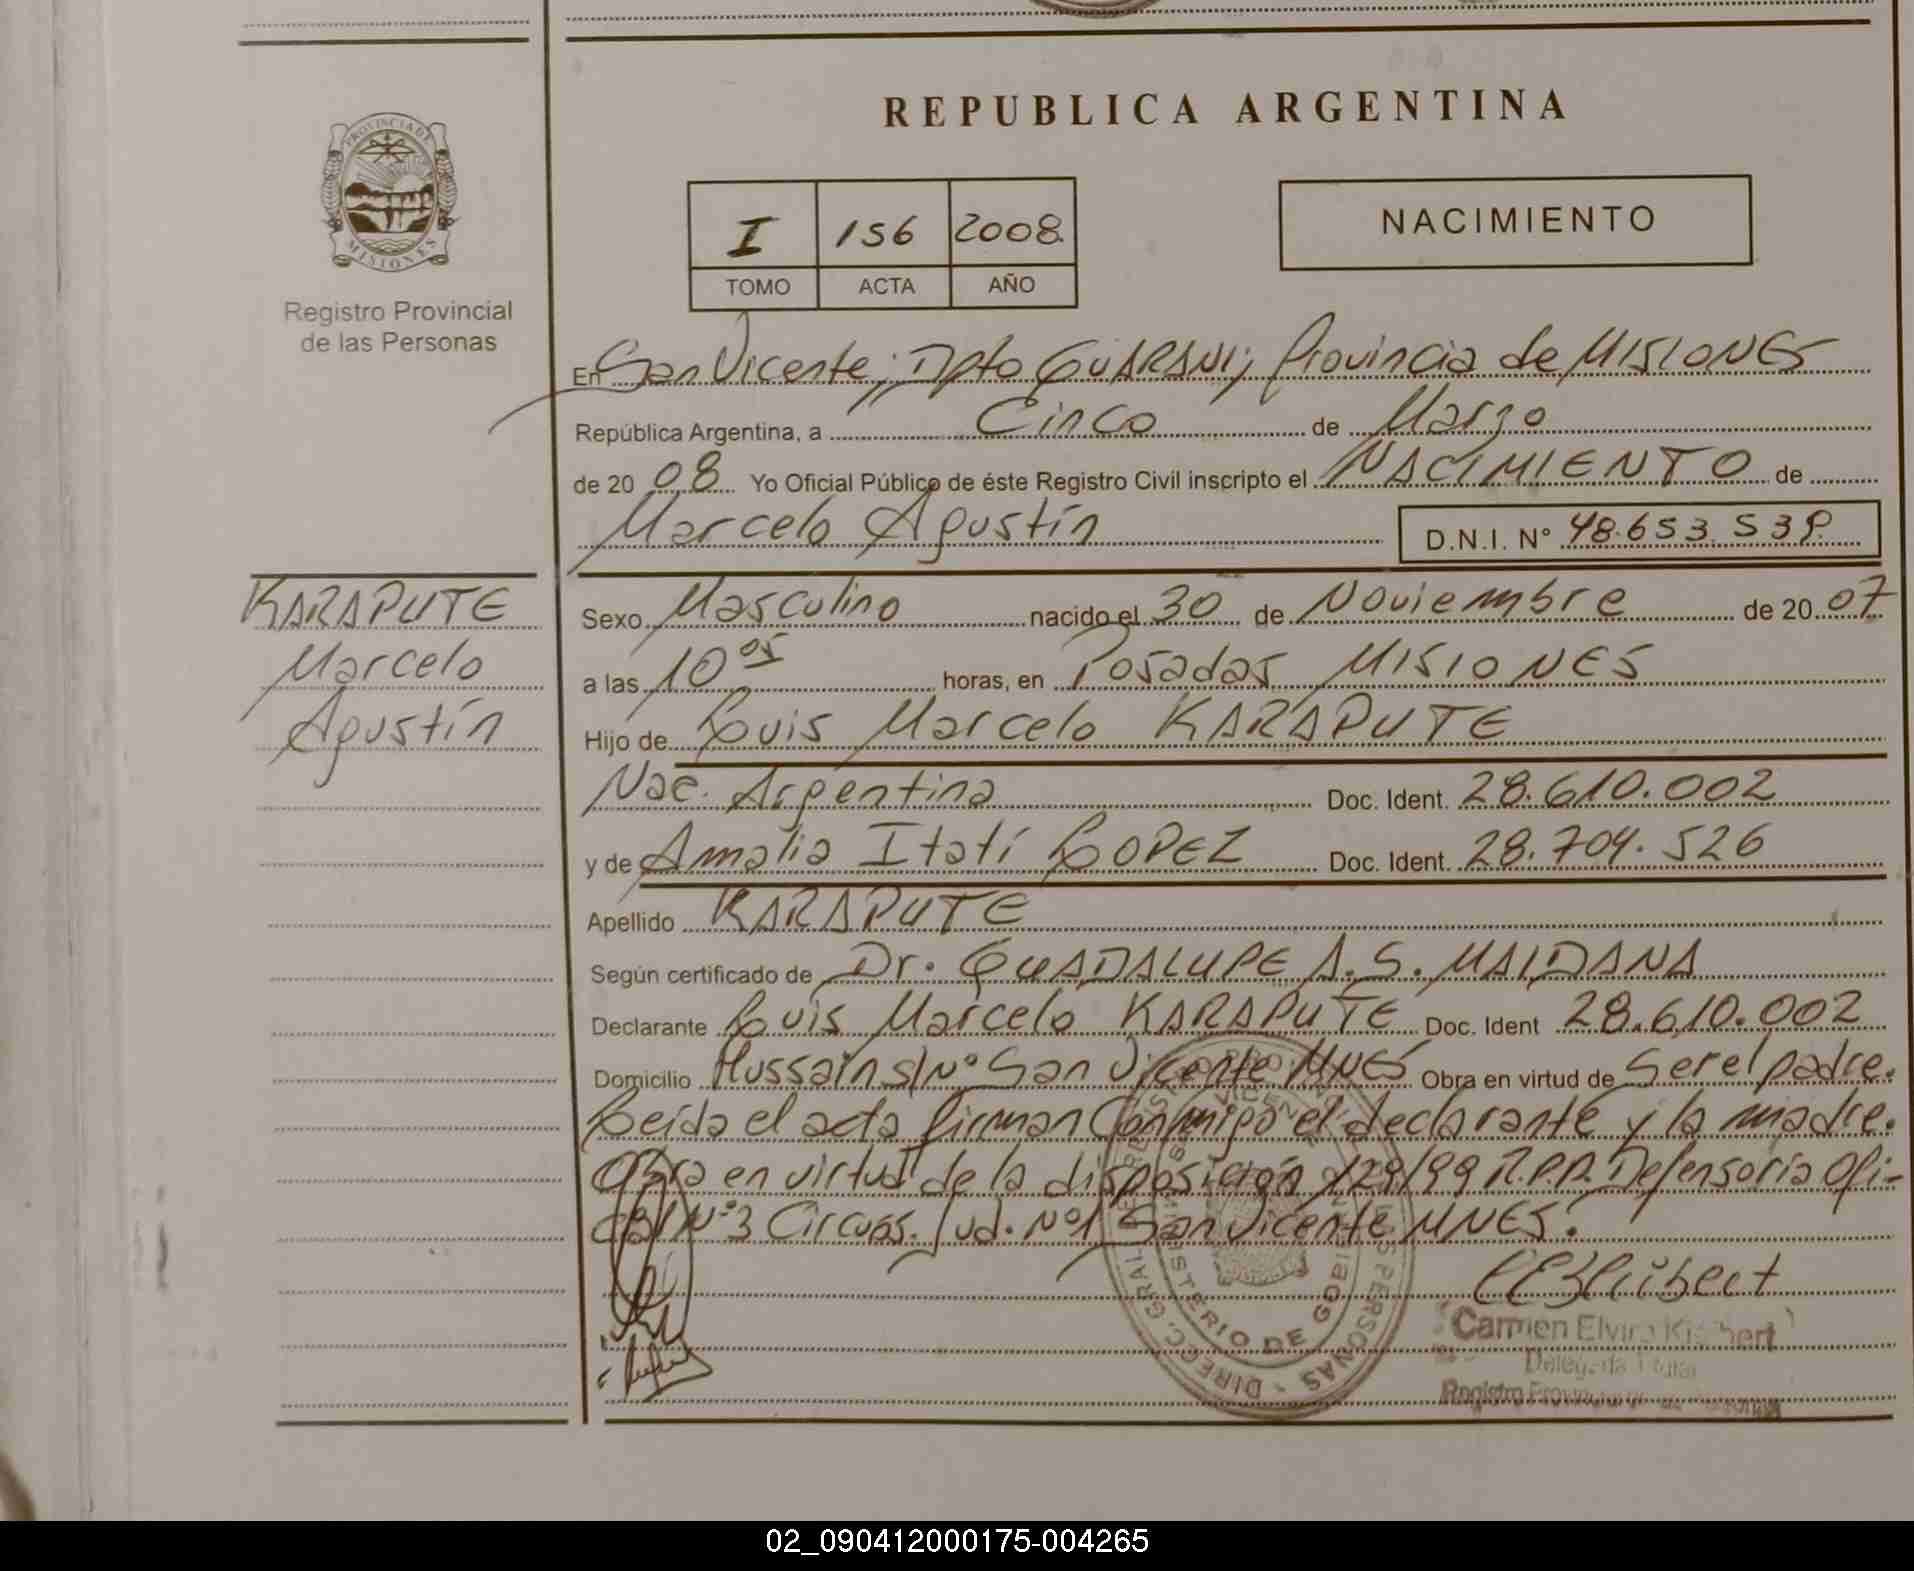 REPUBLICA ARGENTINA
PROVINCIA DE MISIONES
Registro Provincial
de las Personas
I 156 2008.
TOMO ACTA AÑO
NACIMIENTO
En San Vicente; Dpto GUARANI; Provincia de MISIONES
República Argentina, a Cinco de Marzo
de 20 08 Yo Oficial Público de éste Registro Civil inscripto el NACIMIENTO de
Marcelo Agustín D.N.I. N° 48.653.539.
KARAPUTE
Marcelo
Agustín
Sexo Masculino nacido el 30 de Noviembre de 20 07
a las 10 05 horas, en Posadas MISIONES
Hijo de Luis Marcelo KARAPUTE
Nac. Argentina Doc. Ident. 28.610.002
y de Amalia Itatí LOPEZ Doc. Ident. 28.704.526
Apellido KARAPUTE
Según certificado de Dr. GUADALUPE A.S. MAIDANA
Declarante Luis Marcelo KARAPUTE Doc. Ident 28.610.002
Domicilio Hussain s/N° San Vicente MNES Obra en virtud de Ser el padre.
Leída el acta firman Conmigo el declarante y la madre.
Obra en virtud de la disposición 129/99 R.P.P. Defensoría Ofi-
cial N°3 Circuns. Jud. N°1 San Vicente MNES.
DIRECC. GRAL. PERSONAS
MINISTERIO DE GOBI
Carmen Elvira Kisbert
Delegada Titular
Registro Provincial
02_090412000175-004265